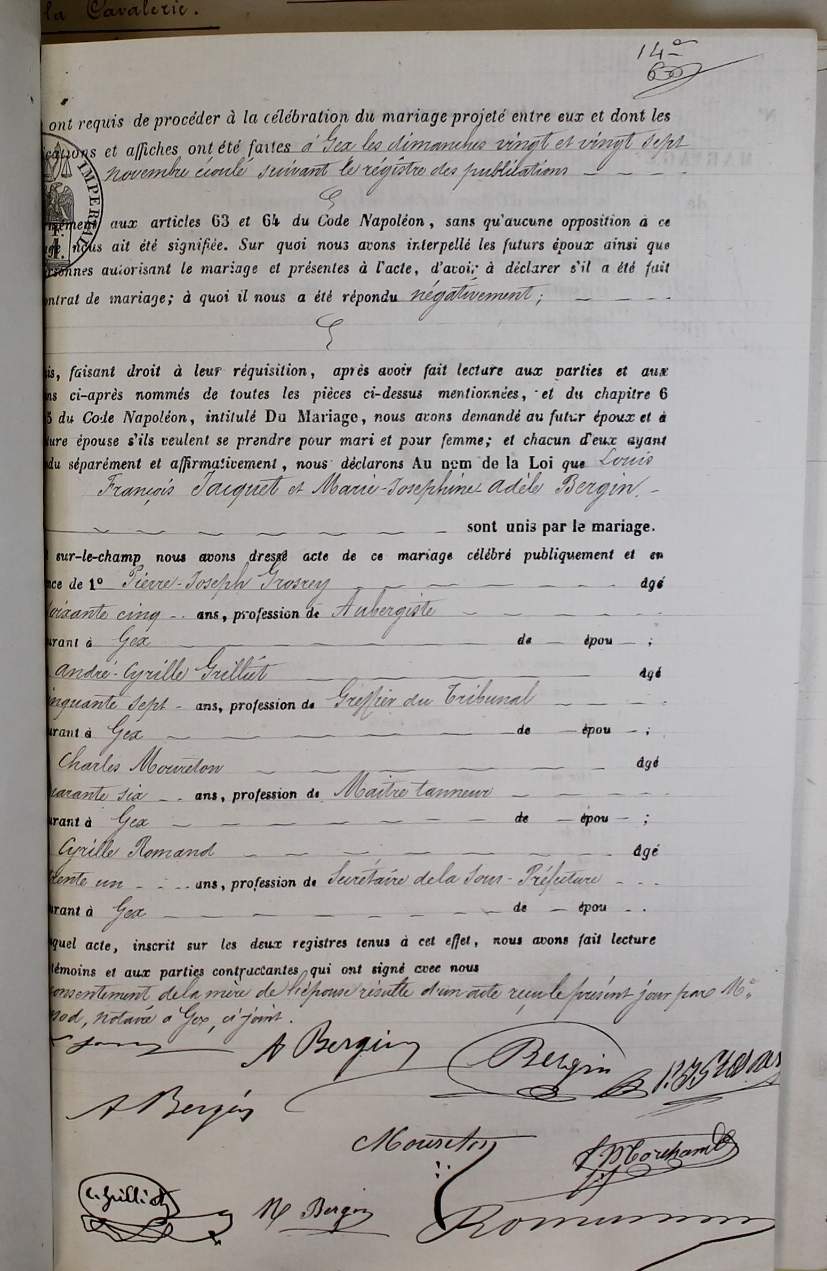 la Cavalerie.
14e
ont requis de procéder à la célébration du mariage projeté entre eux et dont les
ications et affiches ont été faites à Gex les dimanches vingt et vingt sept
novembre écoulé suivant le régistre des publications
IMPERIAL
mément aux articles 63 et 64 du Code Napoléon, sans qu'aucune opposition à ce
ge nous ait été signifiée. Sur quoi nous avons interpellé les futurs époux ainsi que
rsonnes autorisant le mariage et présentes à l'acte, d'avoir à déclarer s'il a été fait
ontrat de mariage; à quoi il nous a été répondu négativement;
is, faisant droit à leur réquisition, après avoir fait lecture aux parties et aux
ns ci-après nommés de toutes les pièces ci-dessus mentionnées, et du chapitre 6
5 du Code Napoléon, intitulé Du Mariage, nous avons demandé au futur époux et à
ture épouse s'ils veulent se prendre pour mari et pour femme; et chacun d'eux ayant
du séparément et affirmativement, nous déclarons Au nom de la Loi que Louis
François Jacquet et Marie-Josephine Adèle Bergin
sont unis par le mariage.
t sur-le-champ nous avons dressé acte de ce mariage célébré publiquement et en
nce de 1° Pierre-Joseph Grosrey âgé
soixante cinq ans, profession de Aubergiste
urant à Gex de épou ;
André-Cyrille Grilliet âgé
inquante sept ans, profession de Greffier du Tribunal
urant à Gex de épou ;
Charles Moureton âgé
uarante six ans, profession de Maître tanneur
urant à Gex de épou ;
Cyrille Romand âgé
trente un ans, profession de Secrétaire de la Sous-Préfecture
urant à Gex de épou
quel acte, inscrit sur les deux registres tenus à cet effet, nous avons fait lecture
témoins et aux parties contractantes qui ont signé avec nous
consentement de la mère de l'épouse résulte d'un acte reçu le présent jour par Me
nod, notaire à Gex, ci-joint.
A Bergin Bergin
A Bergin
Moureton Marchand
C. Grilliet M Bergin Romand